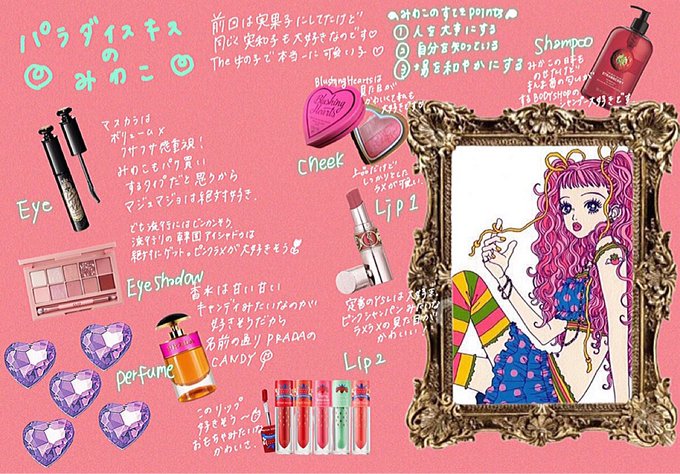 パラダイスキス
の
みわこ
前回は実果子にしてたけど
同じく実和子も大好きなのです♡
The 女の子で本当に可愛い子♡
みわこのすてきpoints
① 人を大事にする
② 自分を知っている
③ 場を和やかにする
Shampoo
するBODYSHOPの
シャンプー大好きです
Blushing Heartsは
見た目が
かわいくてそれも
大好きです
Blushing
Hearts
Cheek
マスカラは
ボリューム×
フサフサ感重視!
みわこもパケ買い
するタイプだと思うから
マジョマジョは絶対好き。
Eye
上品だけど
しっかりとした
ラメが可愛い。
Lip1
流行りの韓国アイシャドウは
絶対にゲット。ピンクラメが大好きそう
Eyeshadow
香水は甘い甘い
キャンディみたいなのが
好きそうだから
名前の通りPRADAの
CANDY
perfume
定番のYSLは大好き。
ピンクシャンパンみたいな
ラメラメの見た目が
かわいい
Lip2
このリップ
好きそう〜
おもちゃみたいな
かわいさ。